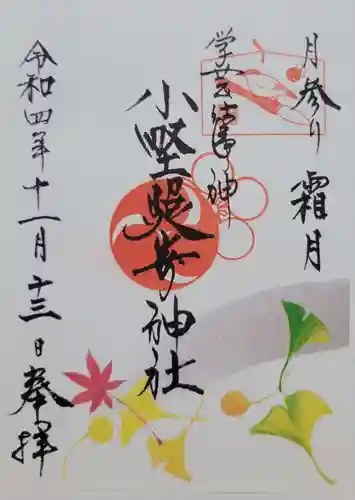 月参り 霜月
学芸 神
小野照崎神社
令和四年十一月十三日 奉拝